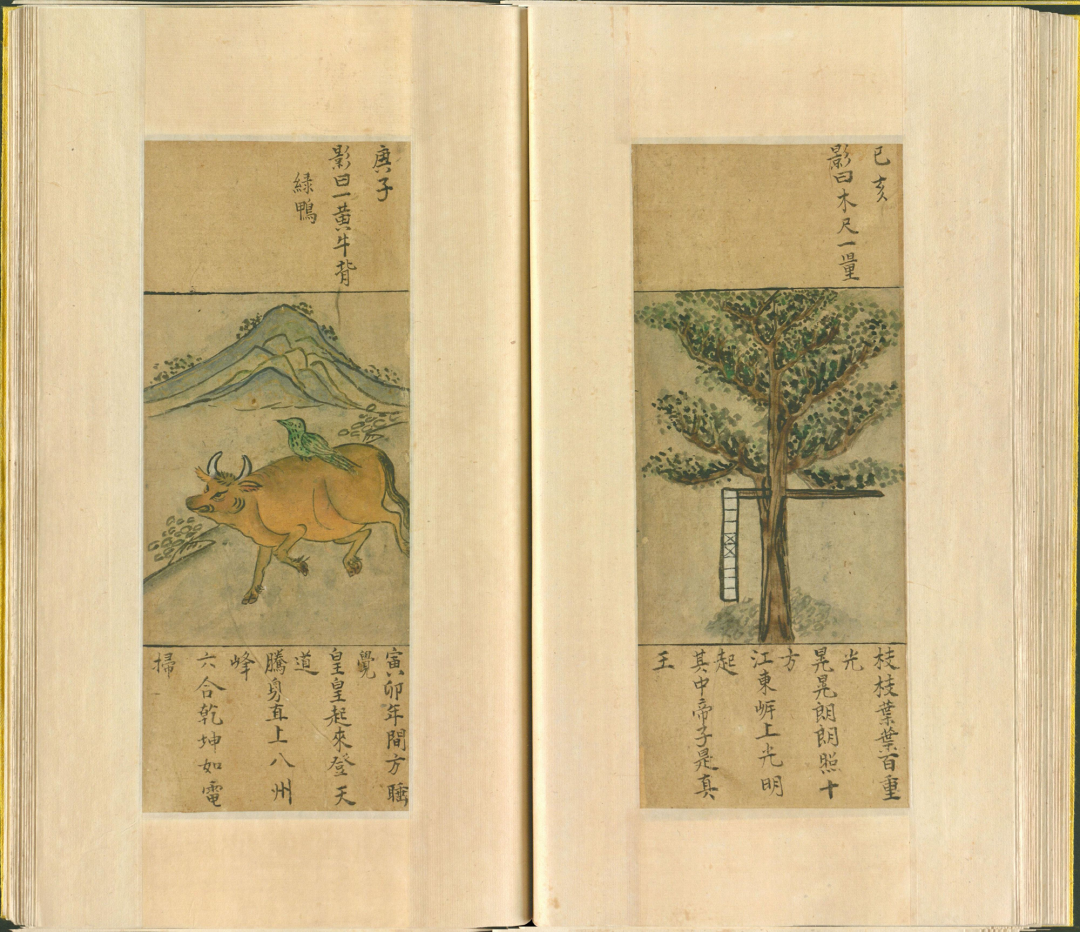 己亥
影曰木尺一量
枝枝葉葉百重
光
晃晃朗朗照十
方
江東岸上光明
起
其中帝子是真
王
庚子
影曰一黄牛背
緑鴨
寅卯年間方睡
覺
皇皇起來登天
道
騰身直上八州
峰
六合乾坤如電
掃